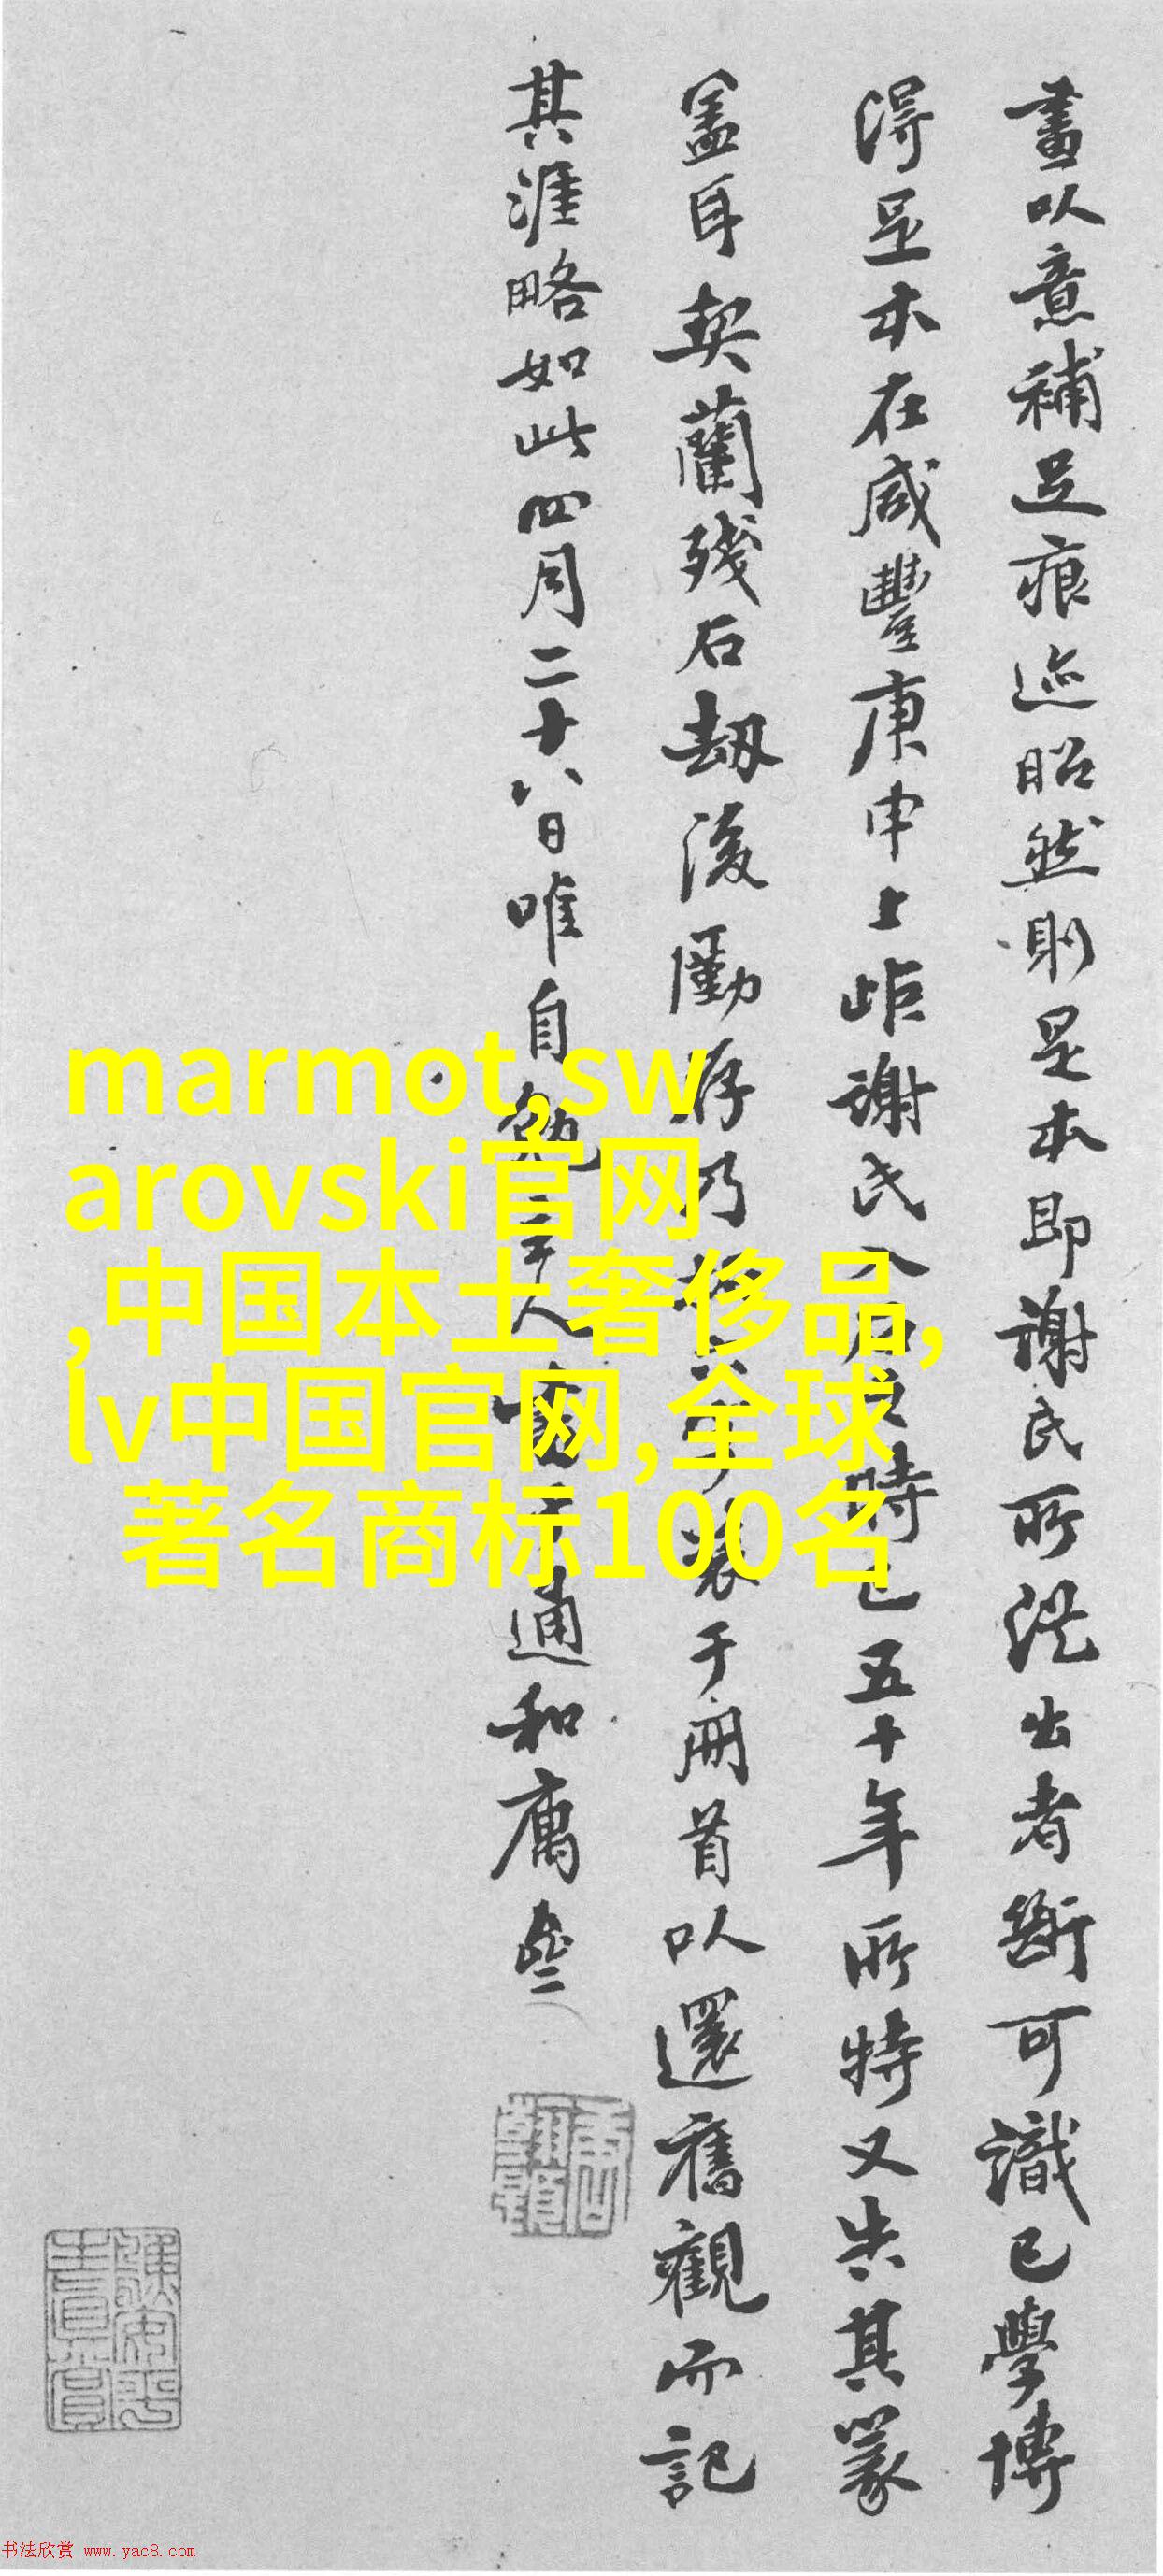 畫以意補足痕迹昭然則是本即謝氏所從出者斷可識已學博
得足本在咸豐庚申上距謝氏入石之時已五十年所特又失其篆
蓋耳契蘭殘石劫後勵存乃
装于冊首以還舊觀而記
其涯略如此四月二十八日唯自勉
人
通和
marmot,sw
arovski官网
,中国本土奢侈品,
lv中国官网,全球
著名商标100名
书法欣赏 www.yac8.com